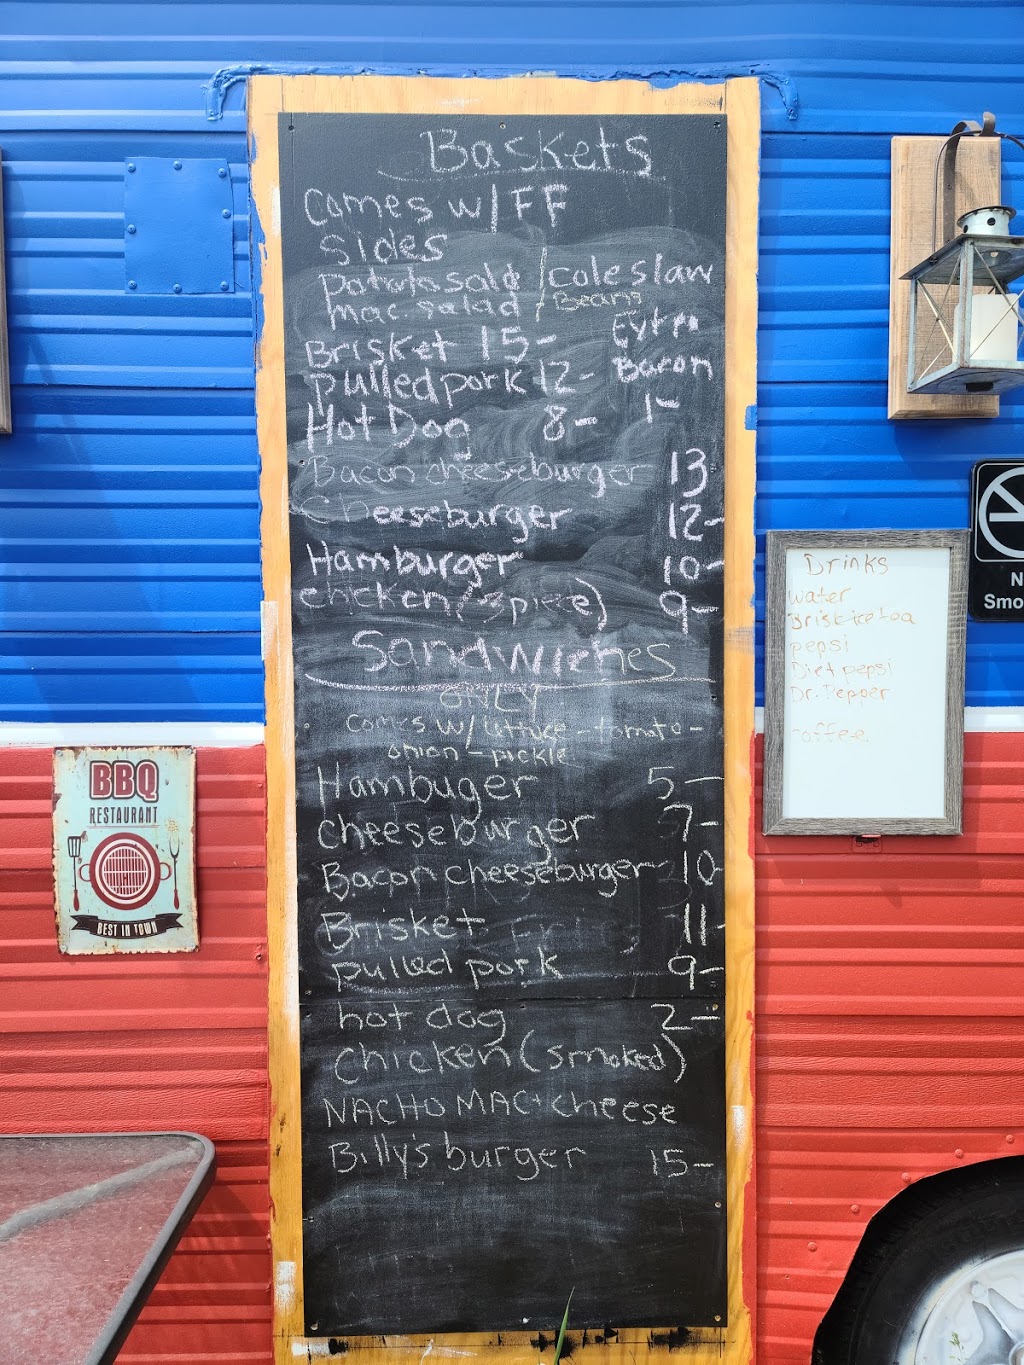 Baskets
Comes w/ FF
Sides
Potato salad / Coleslaw
Mac. salad / Beans
Brisket 15-
Extra
Pulled pork 12-
Bacon
Hot Dog 8-
1-
Bacon cheeseburger 13
Cheeseburger 12-
Hamburger 10-
Chicken (3 piece) 9-
Sandwiches
ONLY
Comes w/ lettuce - tomato -
onion - pickle
Hambuger 5-
cheeseburger 7-
Bacon cheeseburger 10-
Brisket 11-
pulled pork 9-
hot dog 2-
Chicken (smoked)
NACHO MAC + cheese
Billy's burger 15-
Drinks
water
Brisk ice tea
pepsi
Diet pepsi
Dr. Pepper
coffee
BBQ
RESTAURANT
BEST IN TOWN
N
Smo